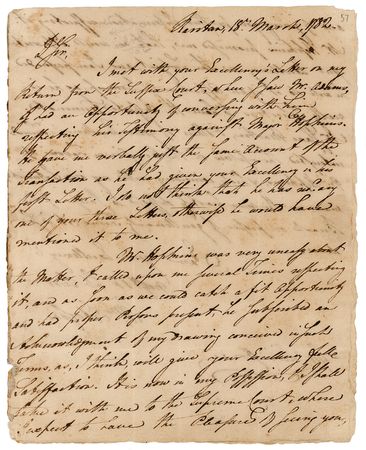 Raritan, 18th March, 1782.
57
Dr Sir,
I met with your Excellency's Letter on my
Return from the Sussex Court, where I saw Mr. Adams,
& had an Opportunity of conversing with him
respecting his Testimony against Major Hopkins.
He gave me verbally just the same Account of the
Transaction as he had given your Excellency in his
first Letter. I do not think that he has rec'd any
one of your three Letters, otherwise he would have
mentioned it to me.
Mr. Hopkins was very uneasy about
the Matter, & called upon me several Times respecting
it, and as soon as we could catch a fit Opportunity
and had proper Persons present, he subscribed an
Acknowledgment of my drawing conceived in such
Terms, as, I think will give your Excellency full
Satisfaction. It is now in my Possession, & I shall
take it with me to the Supreme Court, where
I expect to have the Pleasure of seeing you,